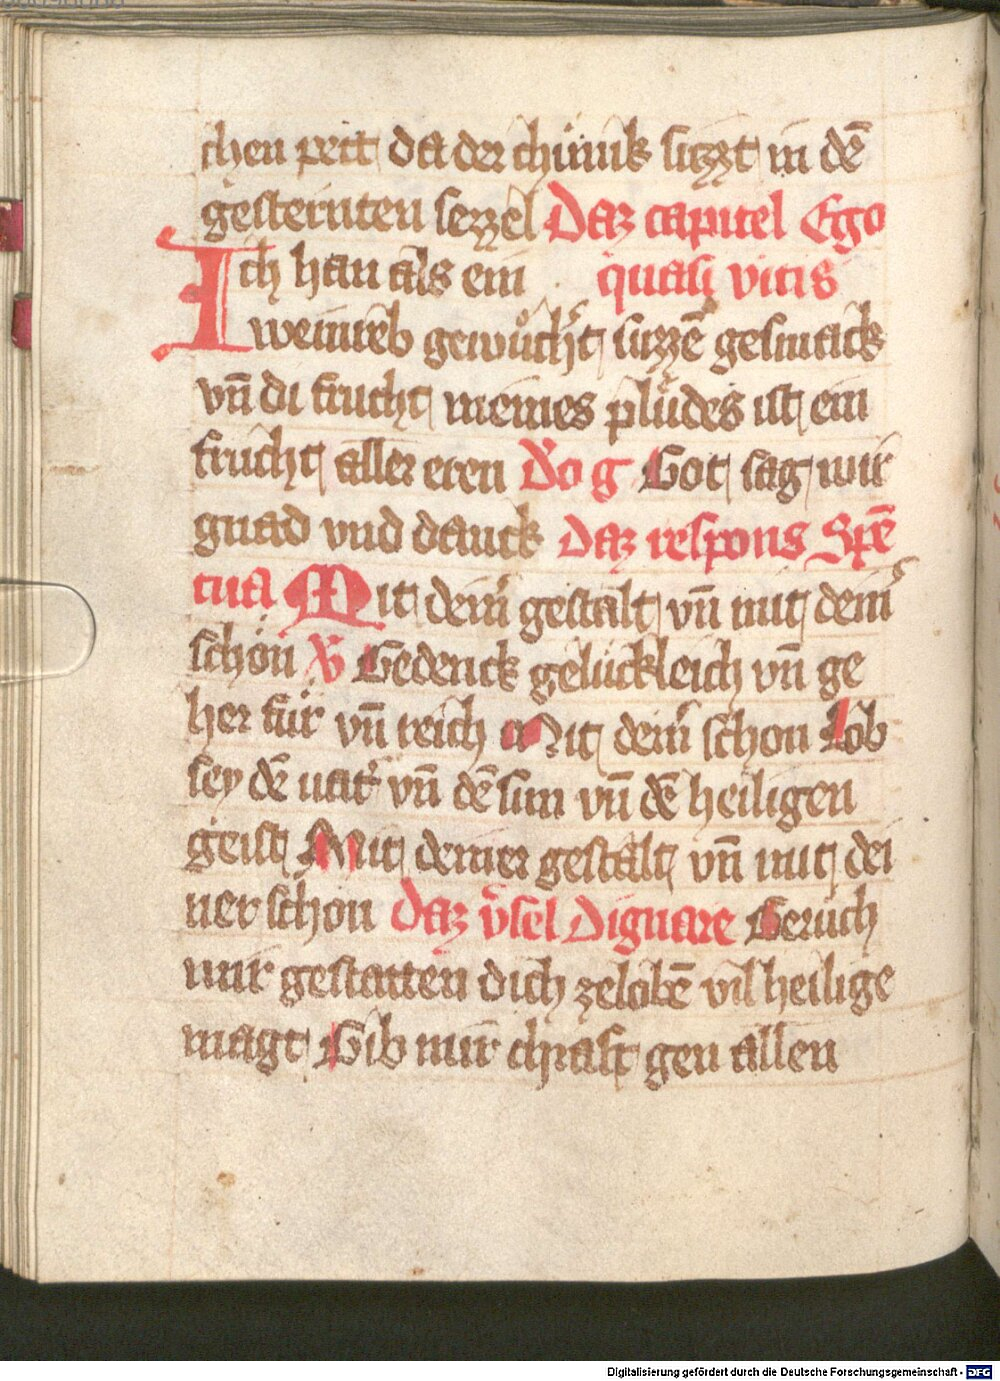 chen pett da der chünik siczzt in dē
gesternten sezzel Daz capitel Ego
Ich han als ein quasi vitis
weinreb gewuͦchſt suzzē gesmack
vn̄ di frucht meines pludes ist ein
frucht aller eren Do g Got sag wir
gnad vnd danck Daz respons Spē
tua Mit deinͬ gestalt vn̄ mit deinͬ
schön V Gedenck gelückleich vn̄ ge
her für vn̄ reich Mit deinͬ schon Lob
sey dē vatͬ vn̄ dē sun vn̄ dē heiligen
geist Mit deiner gestalt vn̄ mit dei
ner schon Daz vͤsel Dignare Geruch
mir gestatten dich zelobē vil heilige
magt Gib mir chraft gen allen
Digitalisierung gefördert durch die Deutsche Forschungsgemeinschaft - DFG